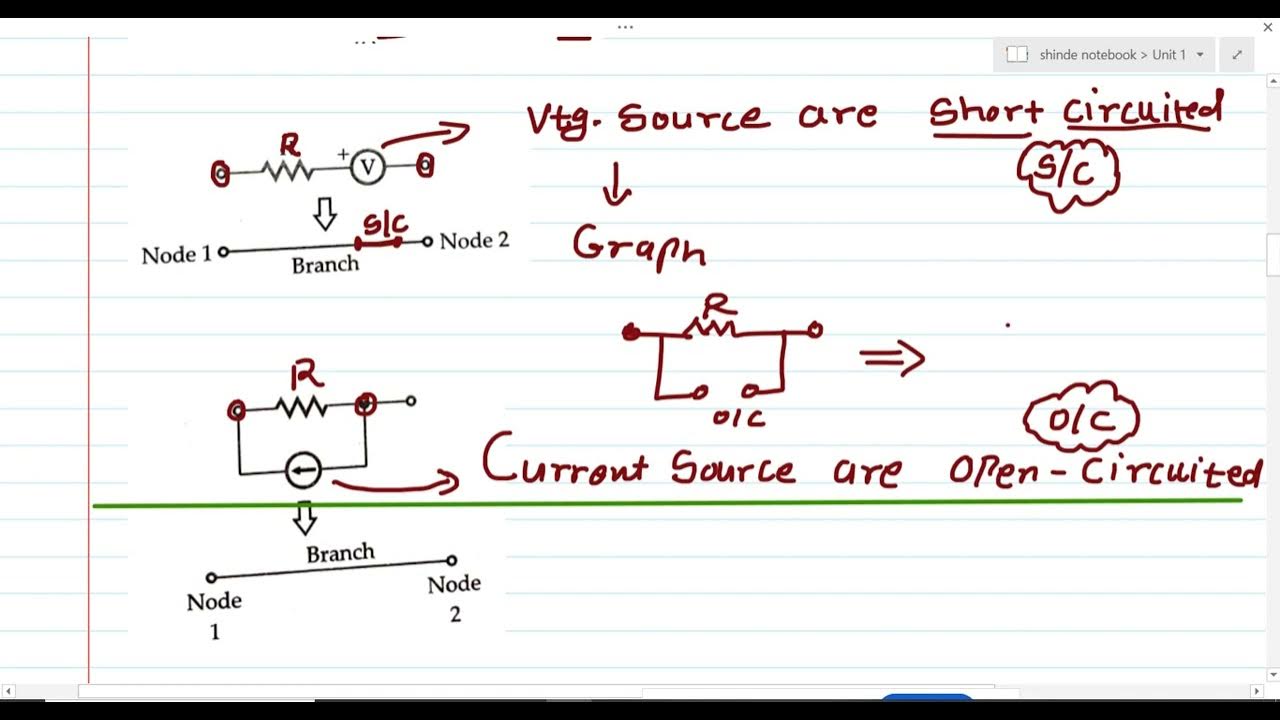 shinde notebook > Unit 1
Vtg. Source are Short Circuited
S/C
R
+
V
S/C
Node 1
Node 2
Branch
Graph
R
O/C
R
O/C
Current Source are Open-Circuited
Branch
Node
1
Node
2